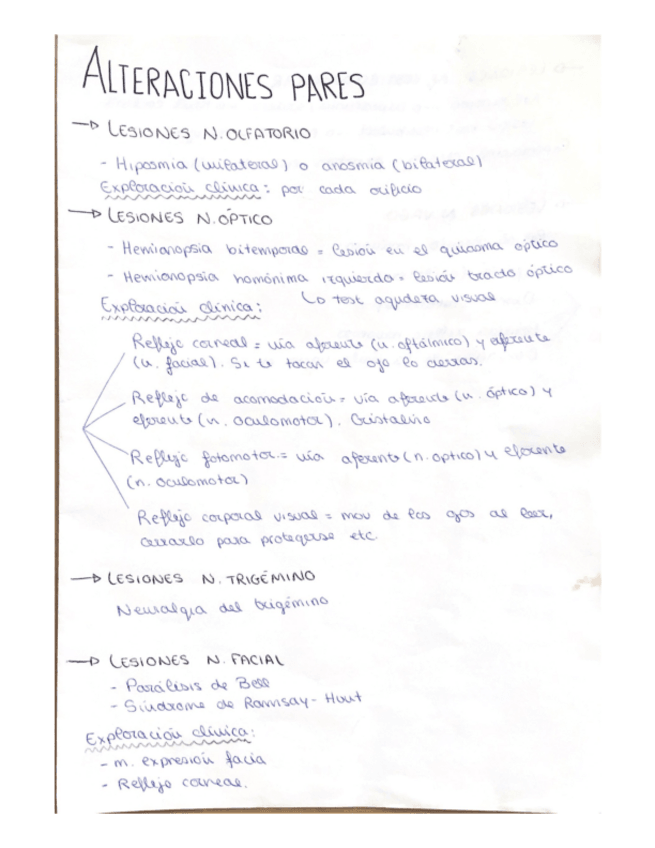 ALTERACIONES PARES
→ LESIONES N. OLFATORIO
- Hiposmia (unilateral) o anosmia (bilateral)
Exploración clínica: por cada orificio
→ LESIONES N. ÓPTICO
- Hemianopsia bitemporal = lesión en el quiasma óptico
- Hemianopsia homónima izquierda = lesión tracto óptico
Exploración clínica: ↳ test agudeza visual
Reflejo corneal = vía aferente (n. oftálmico) y eferente
(n. facial). Si te tocan el ojo lo cierras.
Reflejo de acomodación = vía aferente (n. óptico) y
eferente (n. oculomotor). Cristalino
Reflejo fotomotor = vía aferente (n. optico) y eferente
(n. oculomotor)
Reflejo corporal visual = mov de los ojos al leer,
cerrarlo para protegerse etc.
→ LESIONES N. TRIGÉMINO
Neuralgia del trigémino
→ LESIONES N. FACIAL
- Parálisis de Bell
- Síndrome de Ramsay-Hout
Exploración clínica:
- m. expresión facia
- Reflejo corneal.